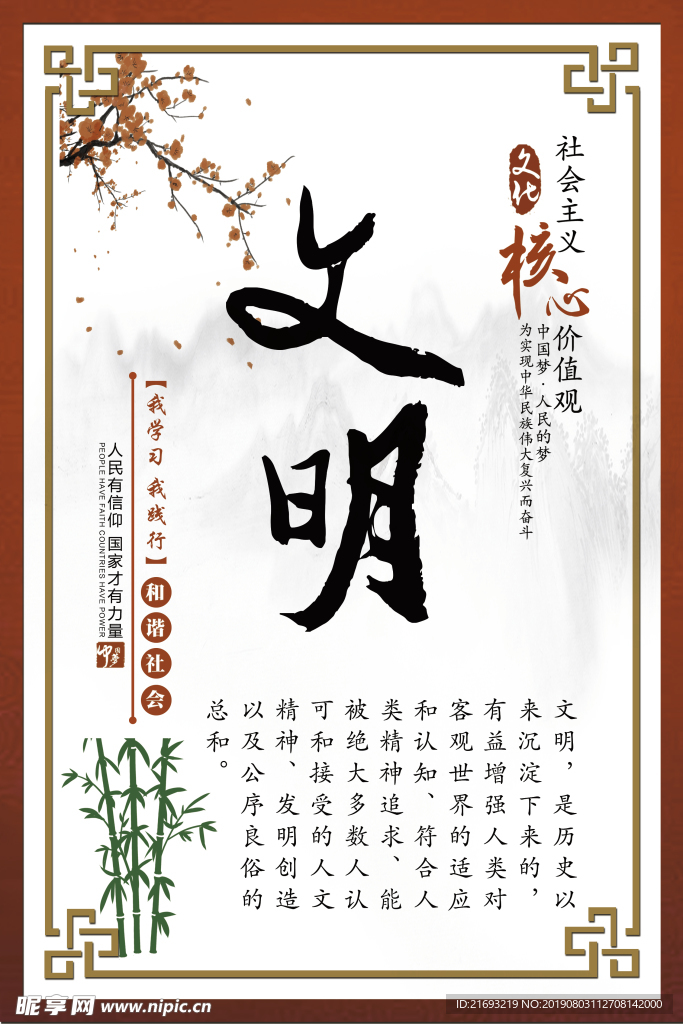 社会主义
文化
核心
价值观
中国梦·人民的梦
为实现中华民族伟大复兴而奋斗
文明
【我学习 我践行】
和谐社会
人民有信仰 国家才有力量
PEOPLE HAVE FAITH COUNTRIES HAVE POWER
中国梦
文明，是历史以
来沉淀下来的，
有益增强人类对
客观世界的适应
和认知、符合人
类精神追求、能
被绝大多数人认
可和接受的人文
精神、发明创造
以及公序良俗的
总和。
昵享网 www.nipic.cn
ID:21693219 NO:20190803112708142000